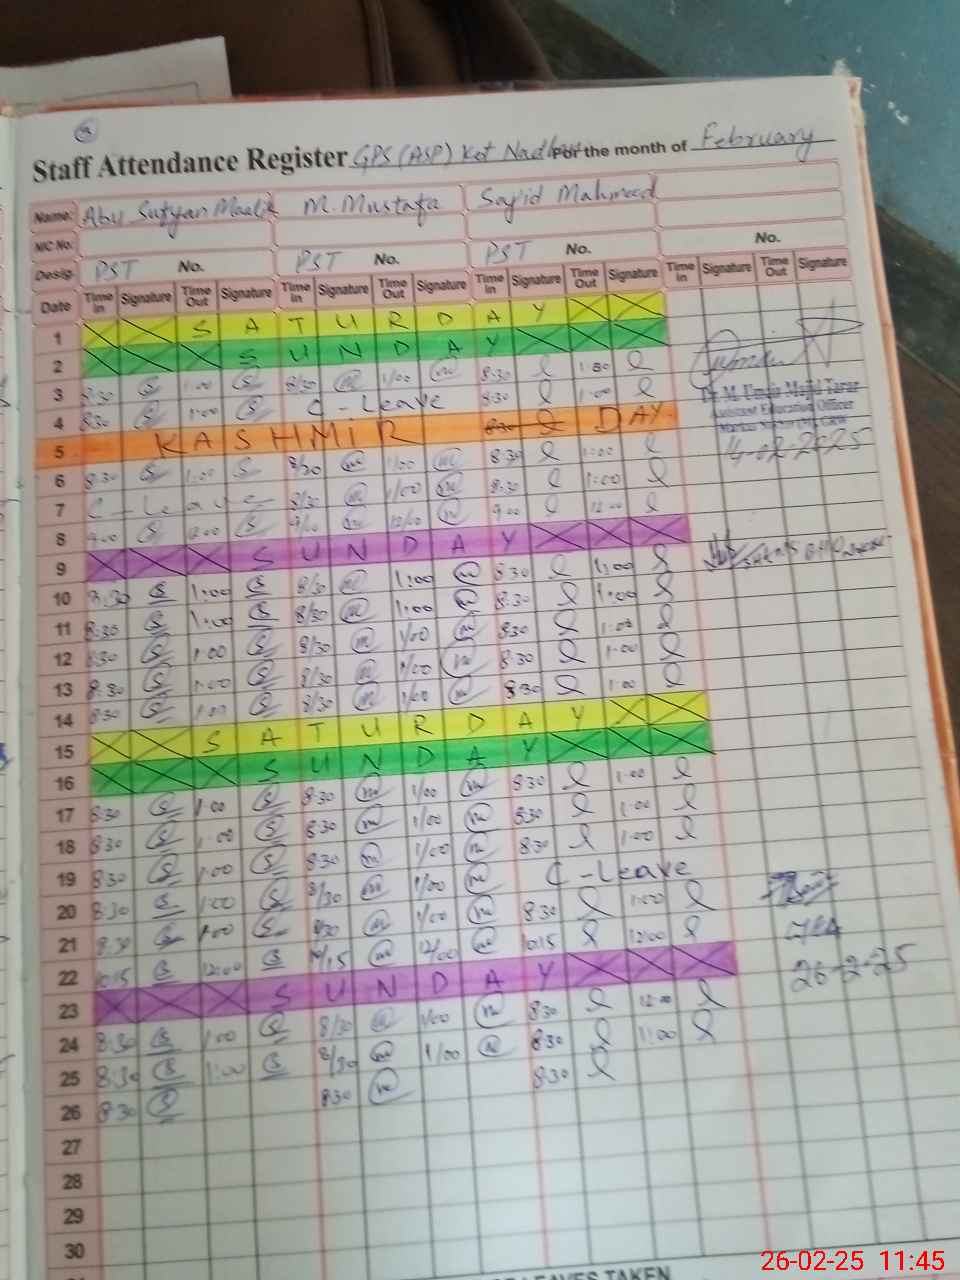 Staff Attendance Register GPS (ASP) Kot For the month of February
Name: Abu Sufyan Maalik M. Mustafa Sajid Mahmood
NIC No.
Desig. PST No. PST No. PST No. No.
Date Time In Signature Time Out Signature Time In Signature Time Out Signature Time In Signature Time Out Signature Time In Signature Time Out Signature
1 SATURDAY
2 SUNDAY
3 8:30 1:00 8/30 1/00 8:30 1:00
4 8:30 1:00 C-Leave 8:30 1:00
Dr. M. Majid Tarar
Assistant Education Officer
5 KASHMIR DAY
4-02-2025
6 8:30 1:00 8/30 1/00 8:30 1:00
7 C-Leave 8/30 1/00 8:30 1:00
8 9:00 12:00 9/00 12/00 9:00 12:00
9 SUNDAY
10 8:30 1:00 8/30 1:00 8:30 1:00
11 8:30 1:00 8/30 1:00 8:30 1:00
12 8:30 1:00 8/30 1/00 8:30 1:00
13 8:30 1:00 8/30 1/00 8:30 1:00
14 8:30 1:00 8/30 1/00 8:30 1:00
15 SATURDAY
16 SUNDAY
17 8:30 1:00 8:30 1/00 8:30 1:00
18 8:30 1:00 8:30 1/00 8:30 1:00
19 8:30 1:00 8:30 1/00 8:30 1:00
20 8:30 1:00 8/30 1/00 C-Leave
21 8:30 1:00 8/30 1/00 8:30 1:00
22 10:15 12:00 10/15 12/00 10:15 12:00
26-2-25
23 SUNDAY
24 8:30 1:00 8/30 1/00 8:30 12:00
25 8:30 1:00 8/30 1/00 8:30 1:00
26 8:30 8:30 8:30
27
28
29
30
LEAVES TAKEN
26-02-25 11:45